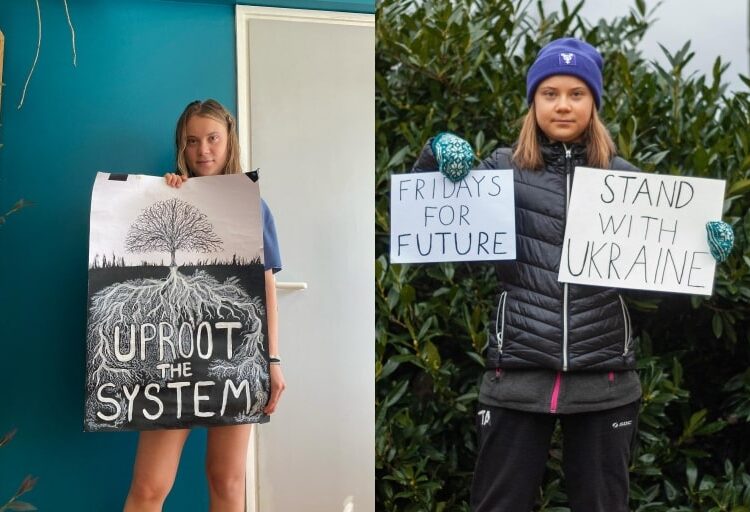 UPROOT
THE
SYSTEM
FRIDAYS
FOR
FUTURE
STAND
WITH
UKRAINE